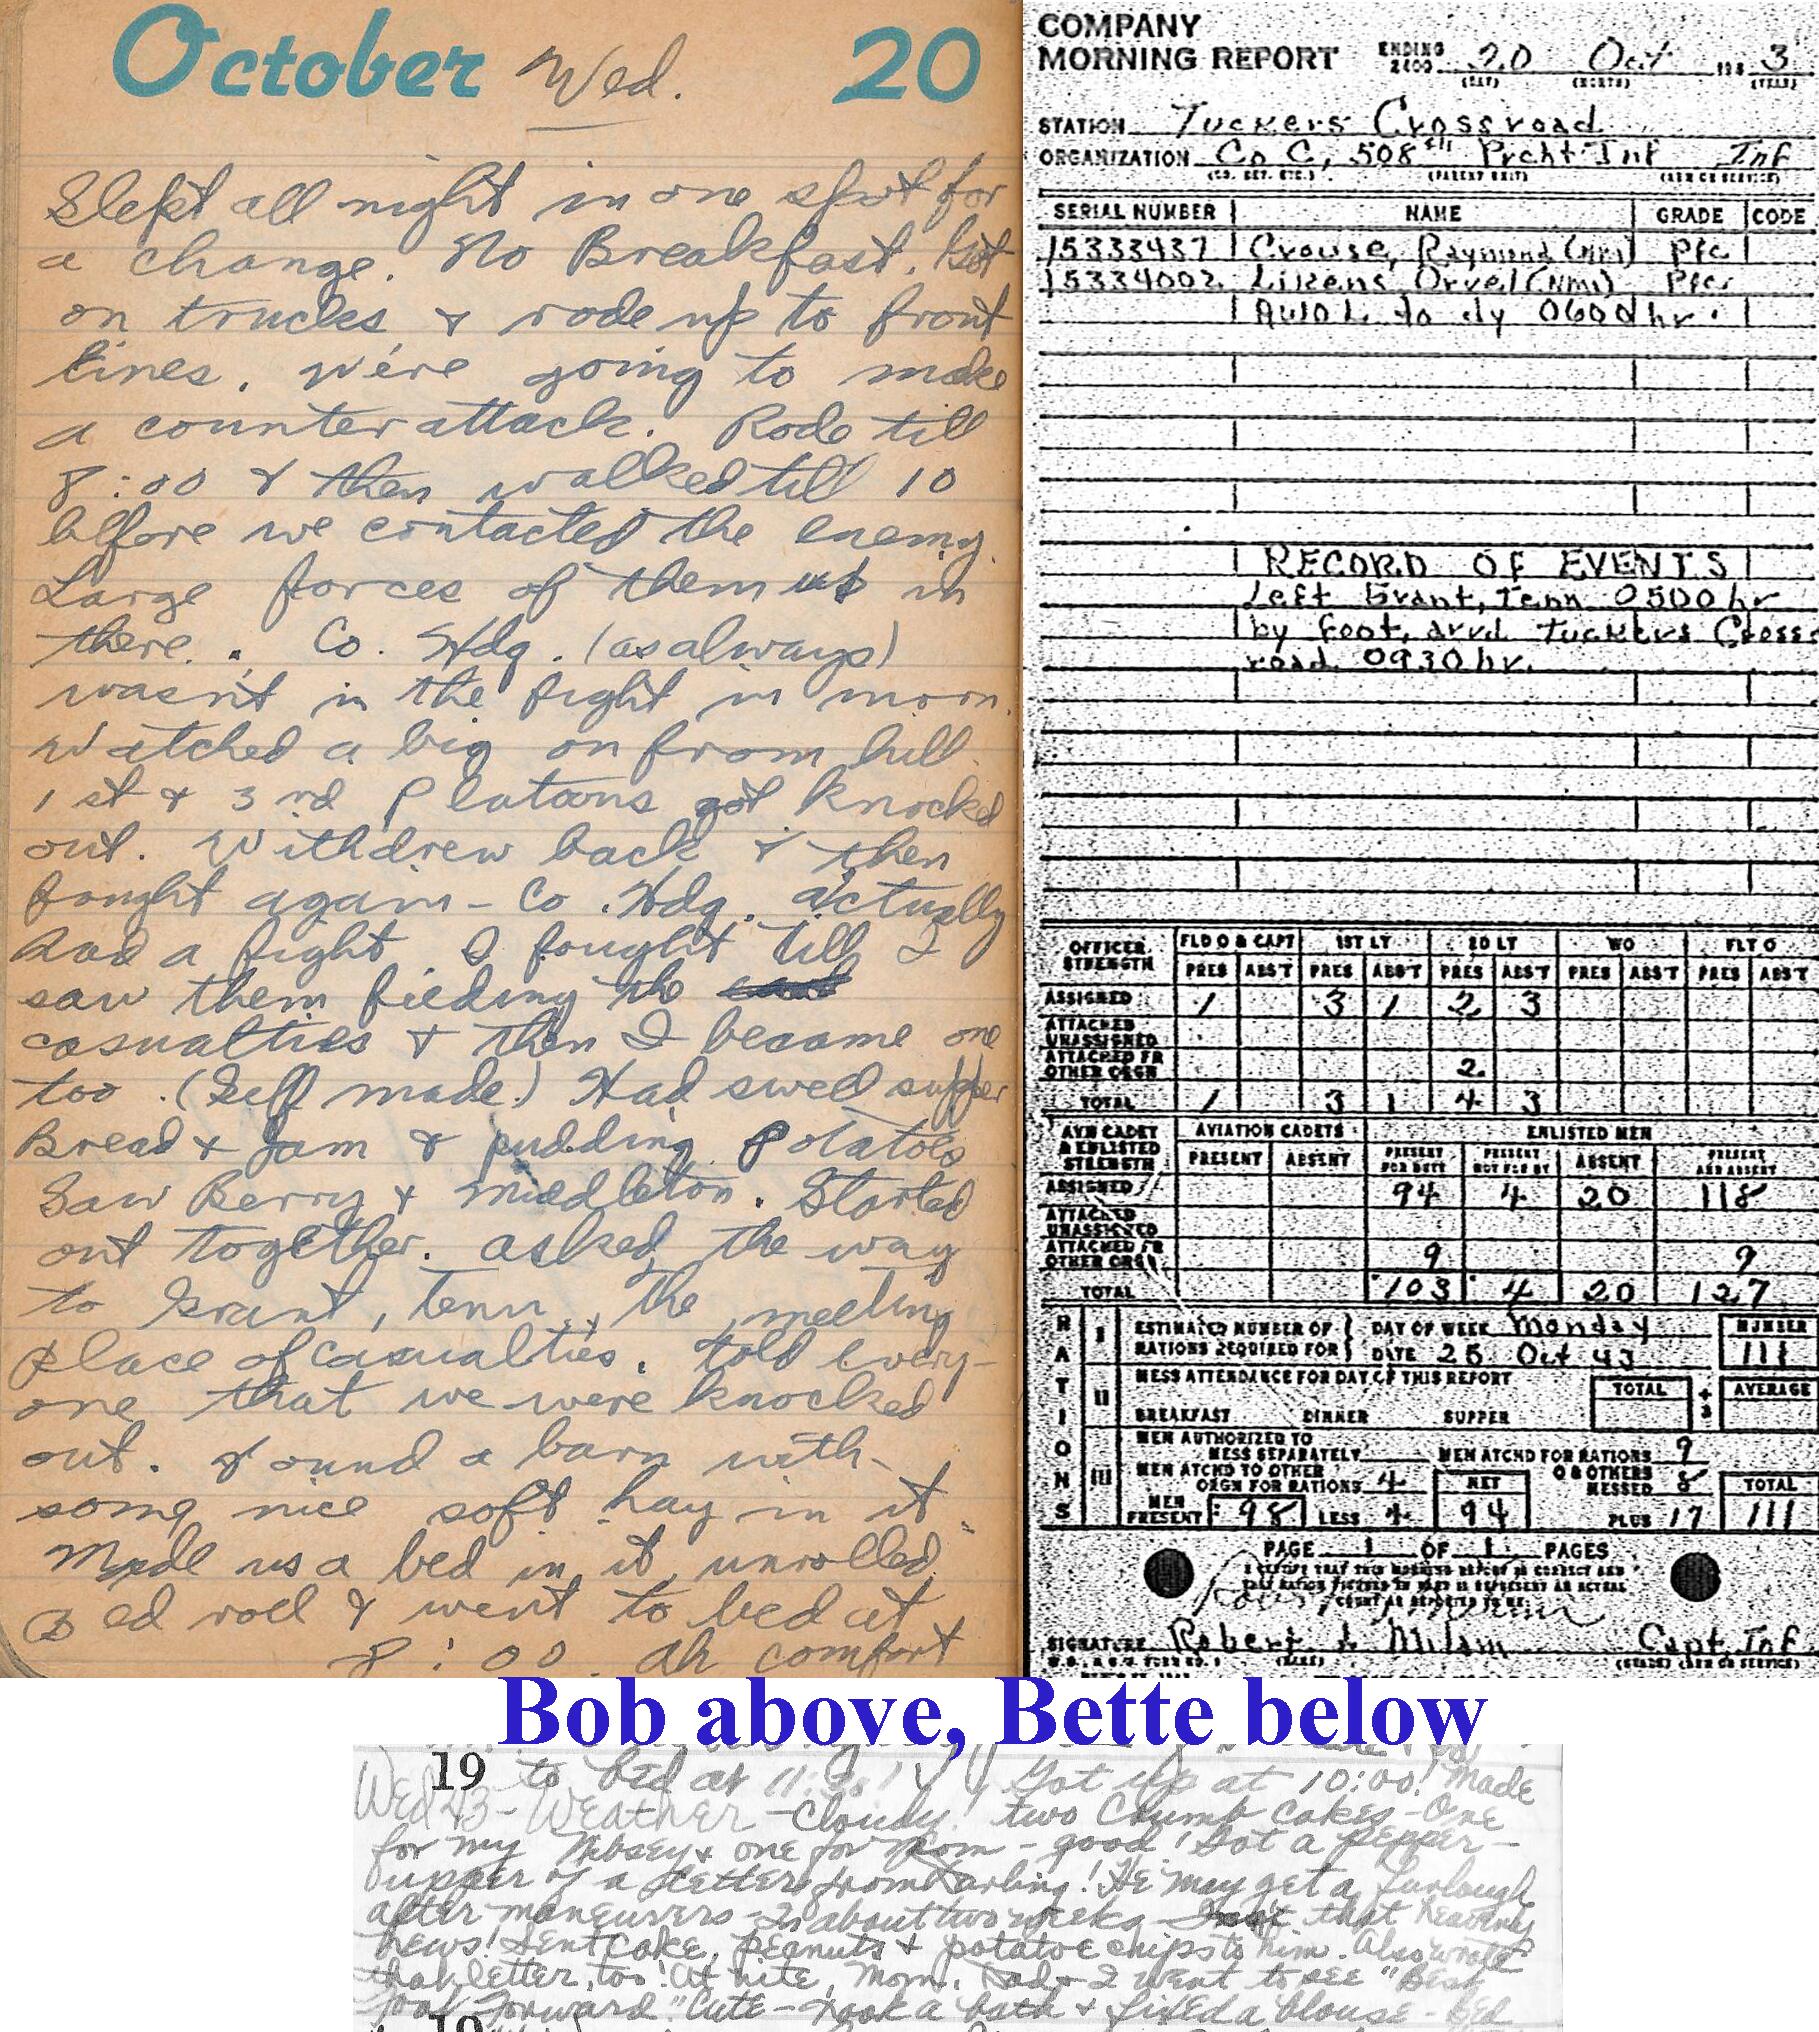 October Wed. 20
Slept all night in one spot for
a change. No Breakfast. Got
on trucks & rode up to front
lines. We're going to make
a counter attack. Rode till
8:00 & then walked till 10
before we contacted the enemy.
Large forces of them in
there. Co. Hdq. (as always)
wasn't in the fight in morn.
Watched a big on from hill.
1st & 3rd Platoons got knocked
out. Withdrew back & then
fought again - Co. Hdq. actually
had a fight I fought till I
saw them fieding the
casualties & then I became one
too. (Self made) Had swell supper
Bread & Jam & pudding. Potatoes
Saw Berry & Middleton. Started
out together. asked the way
to Grant, Tenn., the meeting
place of casualties. Told every-
one that we were knocked
out. Found a barn with-
some nice soft hay in it.
Made us a bed in it, unrolled
Bed roll & went to bed at
8:00. Ah comfort
COMPANY
MORNING REPORT ENDING 2400 20 Oct 3
(DAY) (MONTH) (YEAR)
STATION Tuckers Crossroad
ORGANIZATION Co C, 508th Prcht Inf Inf
(PARENT UNIT) (ARM OR SERVICE)
SERIAL NUMBER NAME GRADE CODE
15333437 Crouse, Raymond (NMI) Pfc
15334002 Likens Orvel (NMI) Pfc
AWOL to dy 0600 hr.
RECORD OF EVENTS
Left Grant, Tenn 0500 hr
by foot, arvd Tuckers Cross
road 0930 hr.
OFFICER STRENGTH FLD O & CAPT 1ST LT 2D LT WO FLT O
PRES ABS'T PRES ABS'T PRES ABS'T PRES ABS'T PRES ABS'T
ASSIGNED 1 3 1 2 3
ATTACHED UNASSIGNED
ATTACHED FR OTHER ORGN 2
TOTAL 1 3 1 4 3
AVN CADET & ENLISTED STRENGTH AVIATION CADETS ENLISTED MEN
PRESENT ABSENT PRESENT FOR DUTY PRESENT NOT FOR DY ABSENT PRESENT AND ABSENT
ASSIGNED 94 4 20 118
ATTACHED UNASSIGNED
ATTACHED FR OTHER ORGN 9 9
TOTAL 103 4 20 127
RATIONS
I ESTIMATED NUMBER OF RATIONS REQUIRED FOR DAY OF WEEK Monday NUMBER
DATE 25 Oct 43 111
II MESS ATTENDANCE FOR DAY OF THIS REPORT TOTAL ÷ 3 AVERAGE
BREAKFAST DINNER SUPPER
III MEN AUTHORIZED TO MESS SEPARATELY MEN ATCHD FOR RATIONS 9
MEN ATCHD TO OTHER ORGN FOR RATIONS 4 NET O & OTHERS MESSED 8 TOTAL
MEN PRESENT 98 LESS 4 94 PLUS 17 111
PAGE 1 OF 1 PAGES
I CERTIFY THAT THIS MORNING REPORT IS CORRECT AND
SIGNATURE Robert Milam Capt. Inf
Bob above, Bette below
19 to bed at 11:30! Got up at 10:00! Made
Wed 43 - Weather - Cloudy! two Crumb cakes - One
for my & one for Mom - good! Got a pepper-
upper of a letter from Darling! He may get a furlough
after maneuvers - In about two weeks - that heavenly
news! Sent cake, peanuts & potatoe chips to him. Also wrote
that letter, too! At nite, Mom, Dad & I went to see "Best
Foot Forward." Cute - Took a bath & fixed a blouse - Bed
19